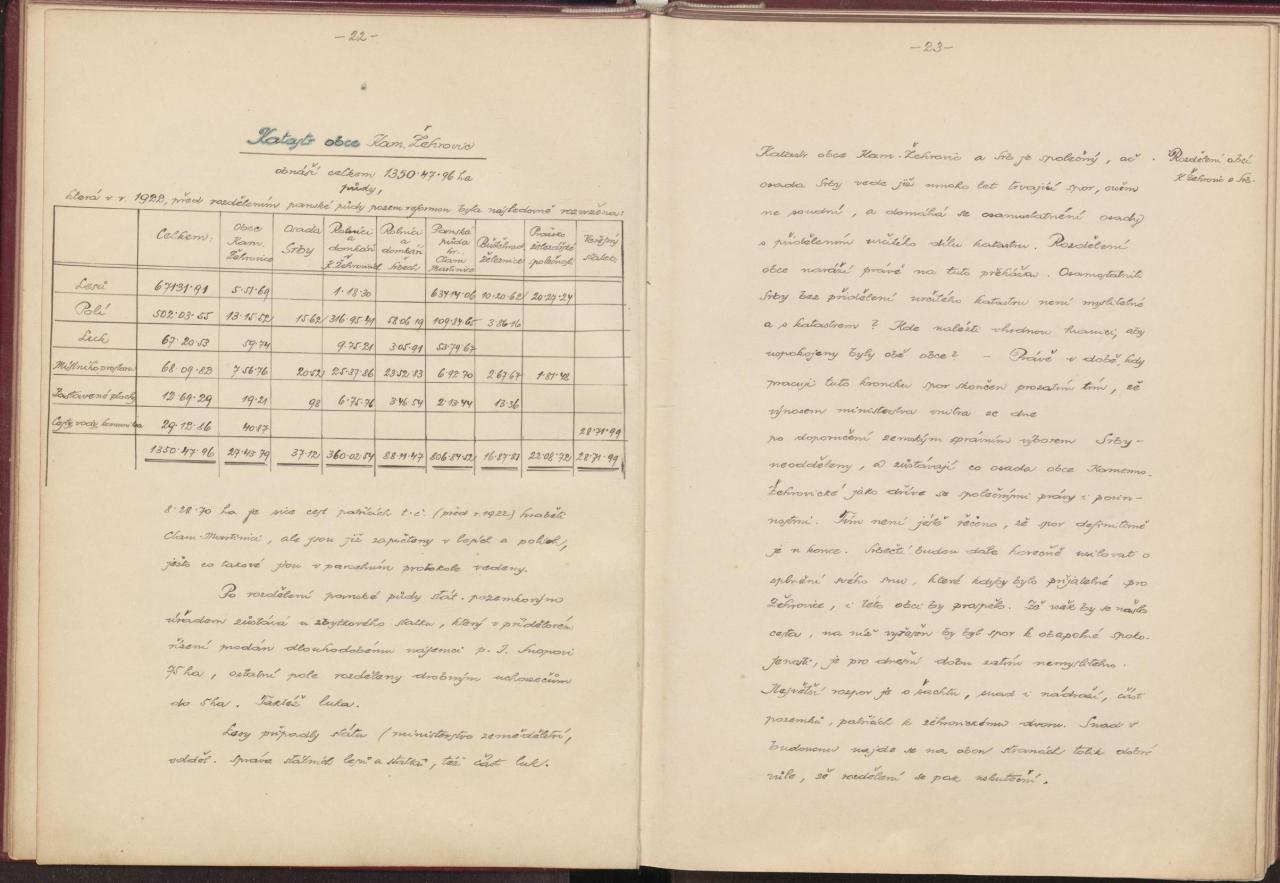 -22-
Katastr obce Kam. Žehrovic
obnáší celkem 1350·47·96 ha
půdy,
která v r. 1922, před rozdělením panské půdy pozem. reformou byla následovně rozvržena:
Celkem: Obec Kam. Žehrovice Osada Srby Rolníci a domkáři K. Žehrovicích Rolníci a domkáři Srbech Panská půda hr. Clam Martinice Buštěhrad. železnice Pražsko železářské společnosti Veřejný statek
Lesů 67131·91 5·51·69 1·18·30 634·14·06 10·20·62 20·27·24
Polí 502·03·55 13·15·52 15 62 316·95·41 58·06·19 109·84·65 3·86·16
Luk 67·20·53 59·74 9·75·21 3·05·91 53·79·67
68·09·82 7·56·76 20 52 25·37·86 23 52·83 6·92·70 2·67·67 1·81·48
Zastavené plochy 12·69·29 19·21 98 6·75·76 3·46·54 2·13·44 13·36
Cesty, vody, 29·12·86 40 87 28·71·99
1350·47·96 27·43·79 37·12 360·02·54 88·11·47 806·84·52 16·87·81 22·08·72 28·71·99
8·28·70 ha je více cest patřících t.č. (před r. 1922) hraběti
Clam-Martinici, ale jsou již započteny v lesích a polích,
ješto co takové jsou v parcelním protokole vedeny.
Po rozdělení panské půdy stát. pozemkovým
úřadem zůstává u zbytkového statku, který v přídělovém
řízení prodán dlouhodobému nájemci p. J.
75 ha, ostatní pole rozděleny drobným uchazečům
do 5 ha. Taktéž luka.
Lesy připadly státu (ministerstvo zemědělství,
odděl. správa státních lesů a statků, též část luk.
-23-
Katastr obce Kam.-Žehrovic a Srb je společný, ač
osada Srby vede již mnoho let trvající spor, ovšem
ne soudní, a domáhá se osamostatnění osady
s přidělením určitého dílu katastru. Rozdělení
obce naráží právě na tuto překážku. Osamostatniti
Srby bez přidělení určitého katastru není myslitelné
a s katastrem? Kde nalézti vhodnou hranici, aby
uspokojeny byly obě obce? - Právě v době, kdy
pracuji tuto kroniku spor skončen prozatím tím, že
výnosem ministerstva vnitra ze dne
po doporučení zemským správním výborem Srby-
neodděleny, a zůstávají co osada obce Kamenno-
Žehrovické jako dříve se společnými právy i povin-
nostmi. Tím není ještě řečeno, že spor definitivně
je u konce. Srbečtí budou dále horečně usilovat o
splnění svého snu, které kdyby bylo přijatelné pro
Žehrovice, i této obci by prospělo. Že však by se našla
cesta, na níž vyřešen by byl spor k obapolné spoko-
jenosti, je pro dnešní dobu zatím nemyslitelno.
Největší rozpor je o šachtu, snad i nádraží, část
pozemků, patřících k žehrovickému dvoru. Snad v
budoucnu najde se na obou stranách tolik dobré
vůle, že rozdělení se pak uskuteční.
Rozdělení obcí
K. Žehrovic a Srb.